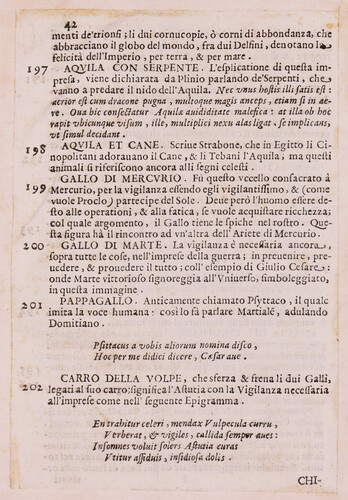 42
menti de'trionfi; li dui cornucopie, ò corni di abbondanza, che
abbracciano il globo del mondo, fra dui Delfini, denotano la
felicità dell'Imperio, per terra, & per mare.
197 AQVILA CON SERPENTE. L'esplicatione di questa im-
presa, viene dichiarata da Plinio parlando de'Serpenti, che
vanno a predare il nido dell'Aquila. Nec vnus hostis illi satis est:
acrior est cum dracone pugna, multoque magis anceps, etiam si in ae-
re. Oua hic consectatur Aquila auiditate malefica: at illa ob hoc
rapit vbicunque visum, ille, multiplici nexu alas ligat se implicans,
vt simul decidant.
198 AQVILA ET CANE. Scriue Strabone, che in Egitto li Ci-
nopolitani adorauano il Cane, & li Tebani l'Aquila; ma questi
animali si riferiscono ancora alli segni celesti.
GALLO DI MERCVRIO. Fù questo vccello consacrato à
199 Mercurio, per la vigilanza essendo egli vigilantissimo, & (come
vuole Proclo) partecipe del Sole. Deue però l'huomo essere de-
sto alle operationi, & alla fatica, se vuole acquistare ricchezza;
col quale argomento, il Gallo tiene le spiche nel rostro. Que-
sta figura hà il rincontro ad vn'altra dell'Ariete di Mercurio.
200 GALLO DI MARTE. La vigilanza è necessaria ancora,
sopra tutte le cose, nell'imprese della guerra; in preuenire, pre-
uedere, & prouedere il tutto; coll'esempio di Giulio Cesare:
onde Marte vittorioso signoreggia all'Vniuerso, simboleggiato,
in questa immagine.
201 PAPPAGALLO. Anticamente chiamato Psytraco, il qual
imita la voce humana: così lo fà parlare Martiale, adulando
Domitiano.
Psittacus a vobis aliorum nomina disco,
Hoc per me didici dicere, Caesar aue.
CARRO DELLA VOLPE, che sferza & frena li dui Galli,
202 legati al suo carro: significa l'Astutia con la Vigilanza necessaria
all'imprese come nell'seguente Epigramma.
En trabitur celeri, mendax Vulpecula curru,
Verberat, & vigiles, callida semper aues:
Insomnes voluit solers Astutia curas
Vtitur assiduis, insidiosa dolis.
CHI-